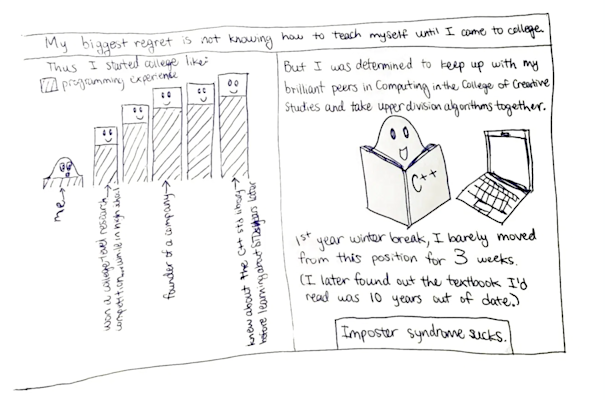 My biggest regret is not knowing how to teach myself until I came to college.
Thus I started college like:
programming experience
me
won a college-level research
competition while in high school
founder of a company
knew about the C++ std library
before learning about it years later
But I was determined to keep up with my
brilliant peers in Computing in the College of Creative
Studies and take upper division algorithms together.
C++
1st year winter break, I barely moved
from this position for 3 weeks.
(I later found out the textbook I'd
read was 10 years out of date.)
Imposter syndrome sucks.